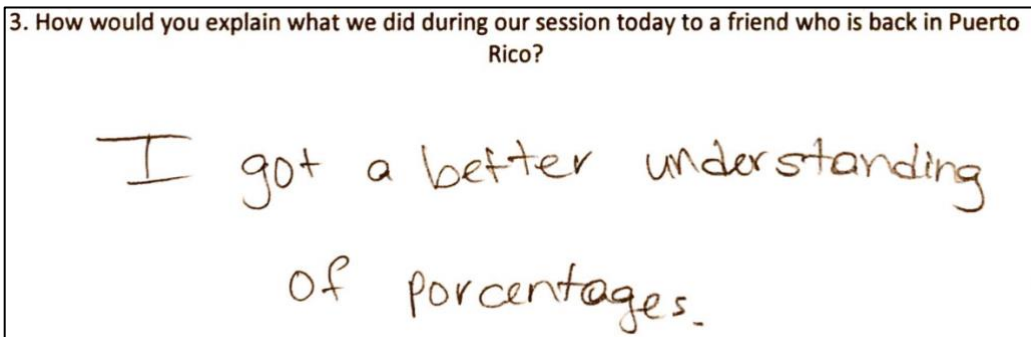 3. How would you explain what we did during our session today to a friend who is back in Puerto
Rico?
I got a better understanding
of porcentages.